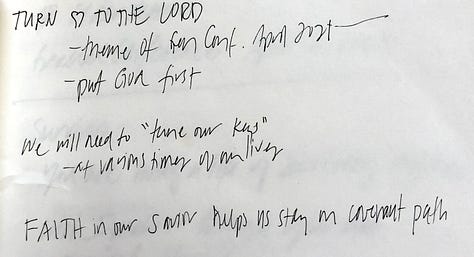 TURN ♡ TO THE LORD
- theme of Gen Conf. April 202
- put God first
We will need to "tune our keys"
- at various times of our lives
FAITH in our Savior helps us stay on covenant path